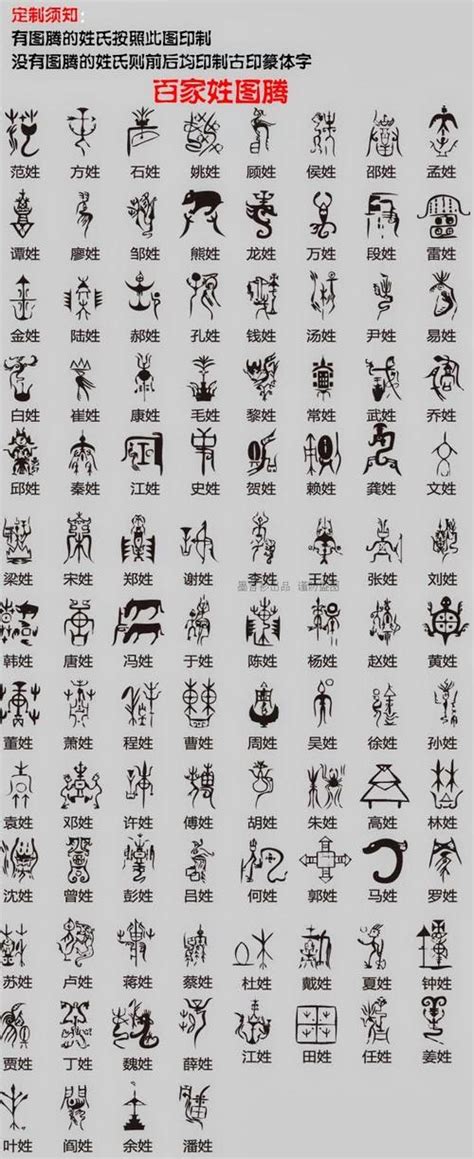 定制须知：
有图腾的姓氏按照此图印制
没有图腾的姓氏则前后均印制古印篆体字
百家姓图腾
范姓 方姓 石姓 姚姓 顾姓 侯姓 邵姓 孟姓
谭姓 廖姓 邹姓 熊姓 龙姓 万姓 段姓 雷姓
金姓 陆姓 郝姓 孔姓 钱姓 汤姓 尹姓 易姓
白姓 崔姓 康姓 毛姓 黎姓 常姓 武姓 乔姓
邱姓 秦姓 江姓 史姓 贺姓 赖姓 龚姓 文姓
梁姓 宋姓 郑姓 谢姓 李姓 王姓 张姓 刘姓
韩姓 唐姓 冯姓 于姓 陈姓 杨姓 赵姓 黄姓
董姓 萧姓 程姓 曹姓 周姓 吴姓 徐姓 孙姓
袁姓 邓姓 许姓 傅姓 胡姓 朱姓 高姓 林姓
沈姓 曾姓 彭姓 吕姓 何姓 郭姓 马姓 罗姓
苏姓 卢姓 蒋姓 蔡姓 杜姓 戴姓 夏姓 钟姓
贾姓 丁姓 魏姓 薛姓 江姓 田姓 任姓 姜姓
叶姓 阎姓 余姓 潘姓